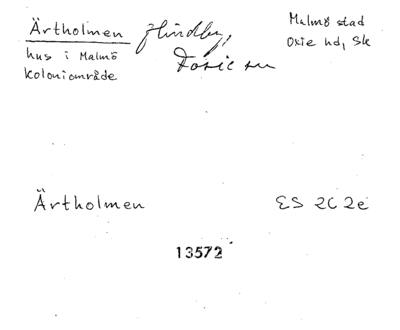 Ärtholmen Hindby, Malmö stad
Oxie hd, Sk
hus i Malmö Fosie sn
koloniområde
Ärtholmen ES 2C 2e
13572